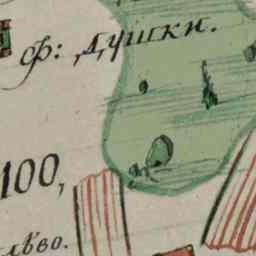 ф: душки.
100,
лѣво.